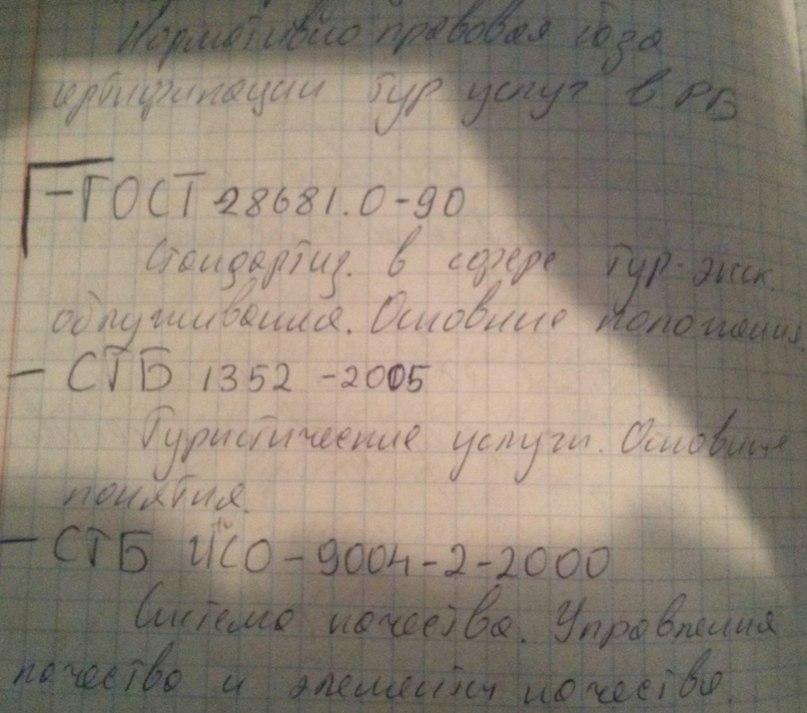 Нормативно правовая база
сертификации тур услуг в РБ
- ГОСТ 28681.0-90
Стандартиз. в сфере тур-экск.
обслуживания. Основные положения.
- СТБ 1352 -2005
Туристические услуги. Основные
понятия.
- СТБ ИСО - 9004-2-2000
Система качества. Управления
качество и элементы качества.